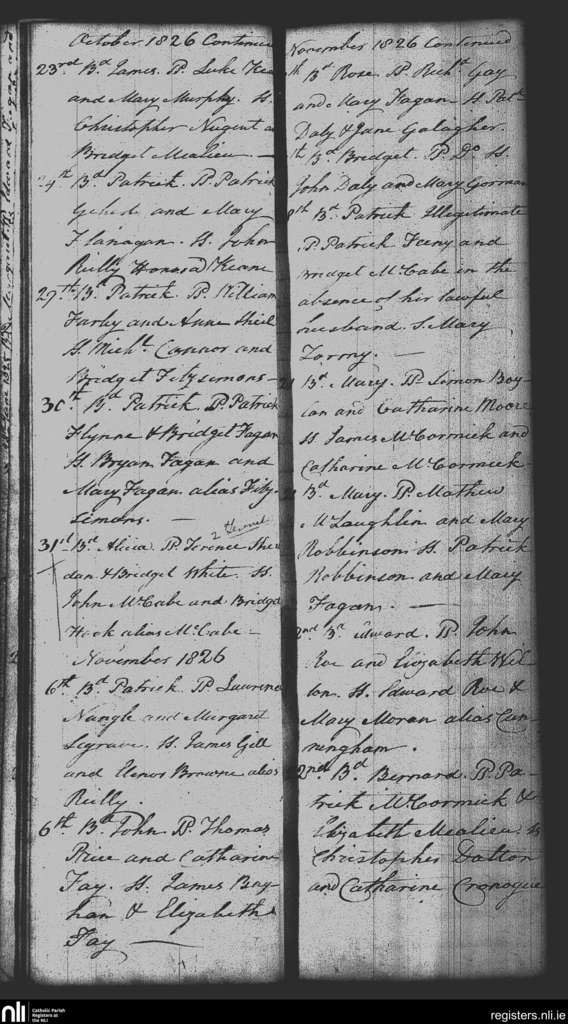 October 1826 Continued
23rd Bd James. P. Luke
and Mary Murphy. H.
Christopher Nugent a
Bridget Mealieu —
24th Bd Patrick. P. Patrick
and Mary
Flanagan. H. John
Reilly Honora Keane
29th Bd Patrick. P. William
Farly and Anne Shiel
H. Michl. Connor and
Bridget Fitzsimons —
30th Bd Patrick. P. Patrick
Flynne & Bridget Fagan
H. Bryan Fagan and
Mary Fagan alias Fitz-
simons. —
31st Bd Alicia. P. Terence Sheri
dan & Bridget White. H.
John McCabe and Bridget
Hook alias McCabe —
November 1826
6th Bd Patrick P. Laurence
Nangle and Margaret
Segrave. H. James Gill
and Elenor Browne alias
Reilly.
6th Bd John P. Thomas
Price and Catharine
Fay. H. James Bay-
han & Elizabeth
Fay —
November 1826 Continued
th Bd Rose P. Richd Gay
and Mary Fagan H. Patk
Daly & Jane Galagher.
th Bd Bridget. P. Do H.
John Daly and Mary Gorman
8th Bd Patrick Illegitimate
P. Patrick Feeny and
Bridget McCabe in the
absence of her lawful
husband. S. Mary
Tormy. —
Bd Mary. P. Simon Boy-
lan and Catharine Moore
H James McCormick and
Catharine McCormick
Bd Mary. P. Mathew
McLaughlin and Mary
Robbinson. H. Patrick
Robbinson and Mary
Fagan. —
2nd Bd Edward. P. John
Roe and Elizabeth Wil-
ton. H. Edward Roe &
Mary Moran alias Cun-
ningham.
22nd Bd Bernard. P. Pa-
trick McCormick &
Elizabeth Mealieu. H
Christopher Dalton
and Catharine Cronogue
nli
Catholic Parish
Registers at
the NLI
registers.nli.ie